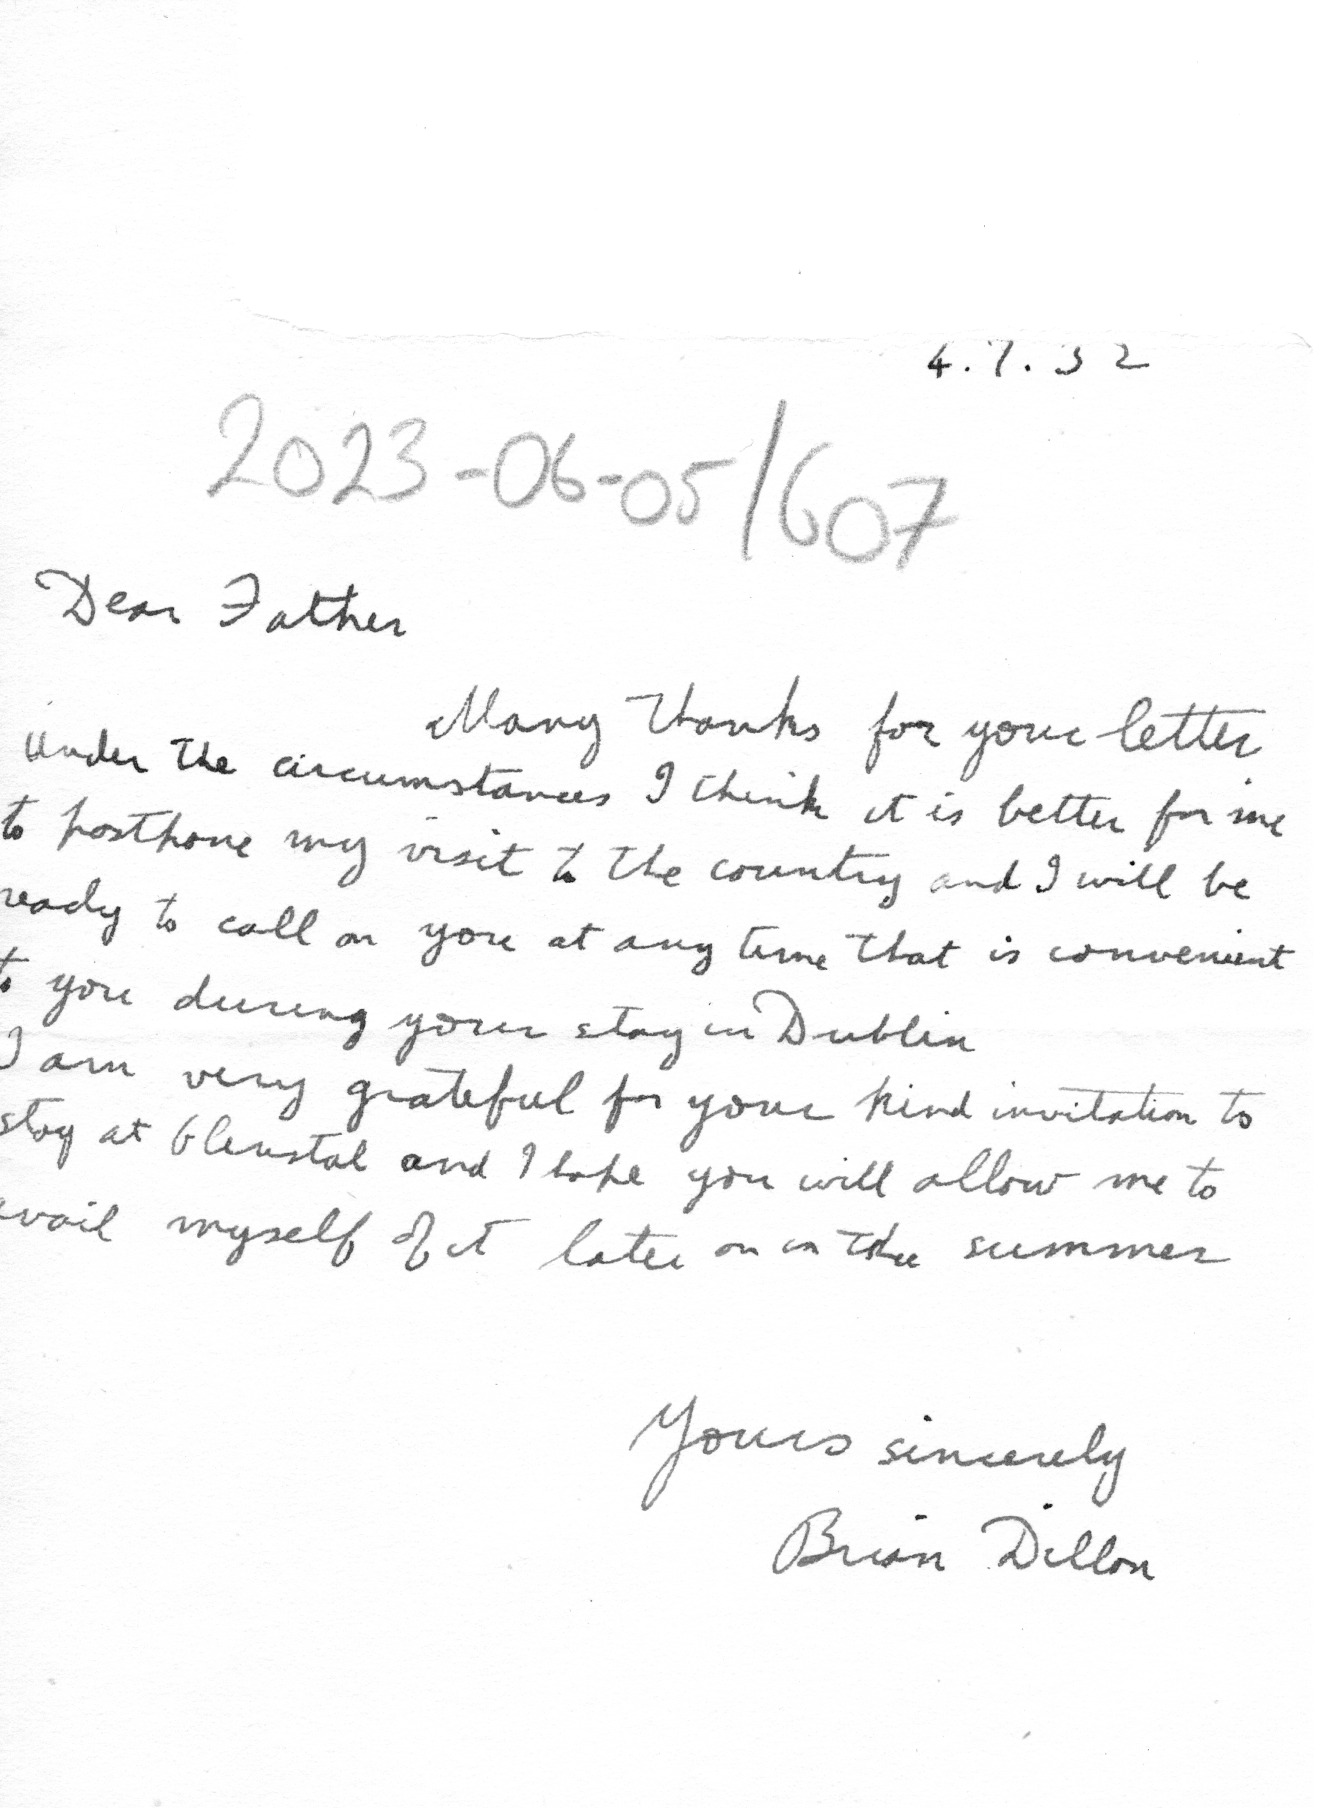 4.7.32
2023-06-05/607
Dear Father
Many thanks for your letter
Under the circumstances I think it is better for me
to postpone my visit to the country and I will be
ready to call on you at any time that is convenient
to you during your stay in Dublin
I am very grateful for your kind invitation to
stay at Glenstal and I hope you will allow me to
avail myself of it later on in the summer
Yours sincerely
Brian Dillon